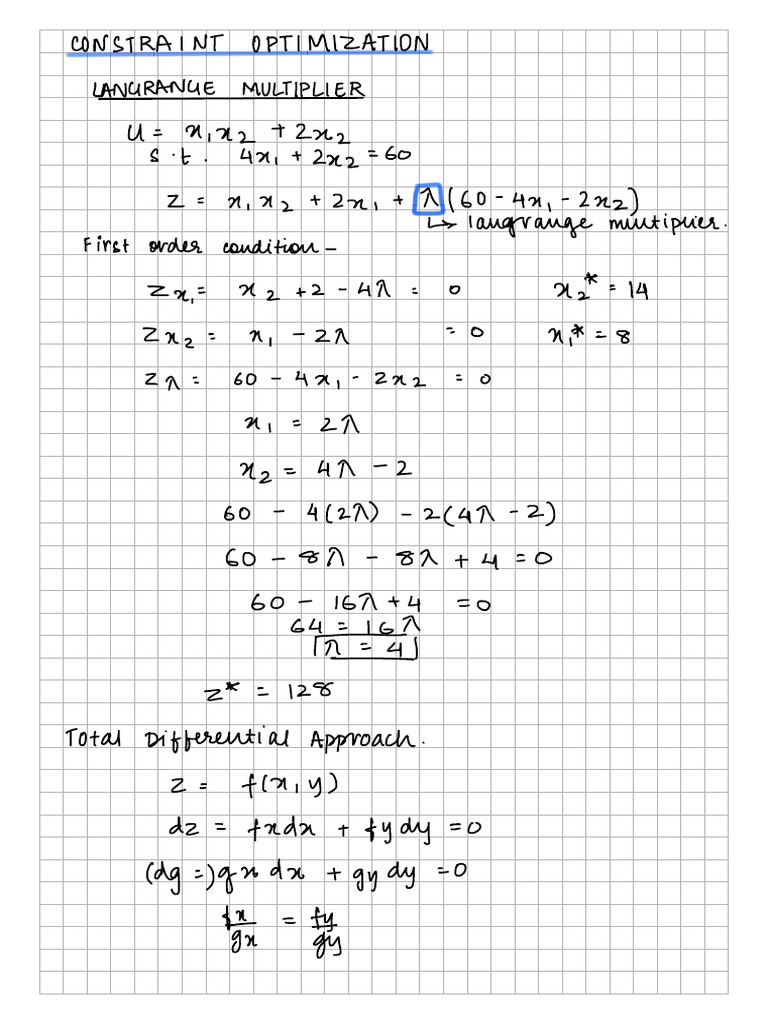 CONSTRAINT OPTIMIZATION
LANGRANGE MULTIPLIER
U = x₁x₂ + 2x₂
s.t. 4x₁ + 2x₂ = 60
Z = x₁x₂ + 2x₁ + λ(60 - 4x₁ - 2x₂)
↳ langrange multiplier.
First order condition -
Zx₁ = x₂ + 2 - 4λ = 0 x₂* = 14
Zx₂ = x₁ - 2λ = 0 x₁* = 8
Zλ = 60 - 4x₁ - 2x₂ = 0
x₁ = 2λ
x₂ = 4λ - 2
60 - 4(2λ) - 2(4λ - 2)
60 - 8λ - 8λ + 4 = 0
60 - 16λ + 4 = 0
64 = 16λ
λ = 4
Z* = 128
Total Differential Approach.
Z = f(x, y)
dz = fxdx + fydy = 0
(dg =) gx dx + gy dy = 0
fx/gx = fy/gy